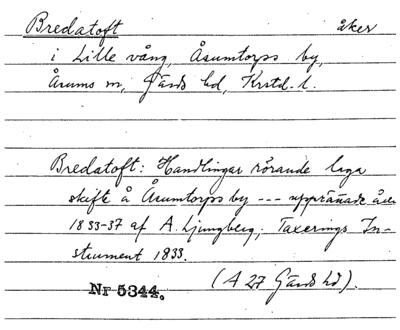 Bredatoft åker
i Lille vång, Åsumtorps by,
Åsums sn, Gärds hd, Krstd. l.
Bredatoft: Handlingar rörande laga
skifte å Åsumtorps by --- upprättade åren
1833-37 af A. Ljungberg; Taxerings In-
strument 1833.
(A 27 Gärds hd).
Nr 5344.